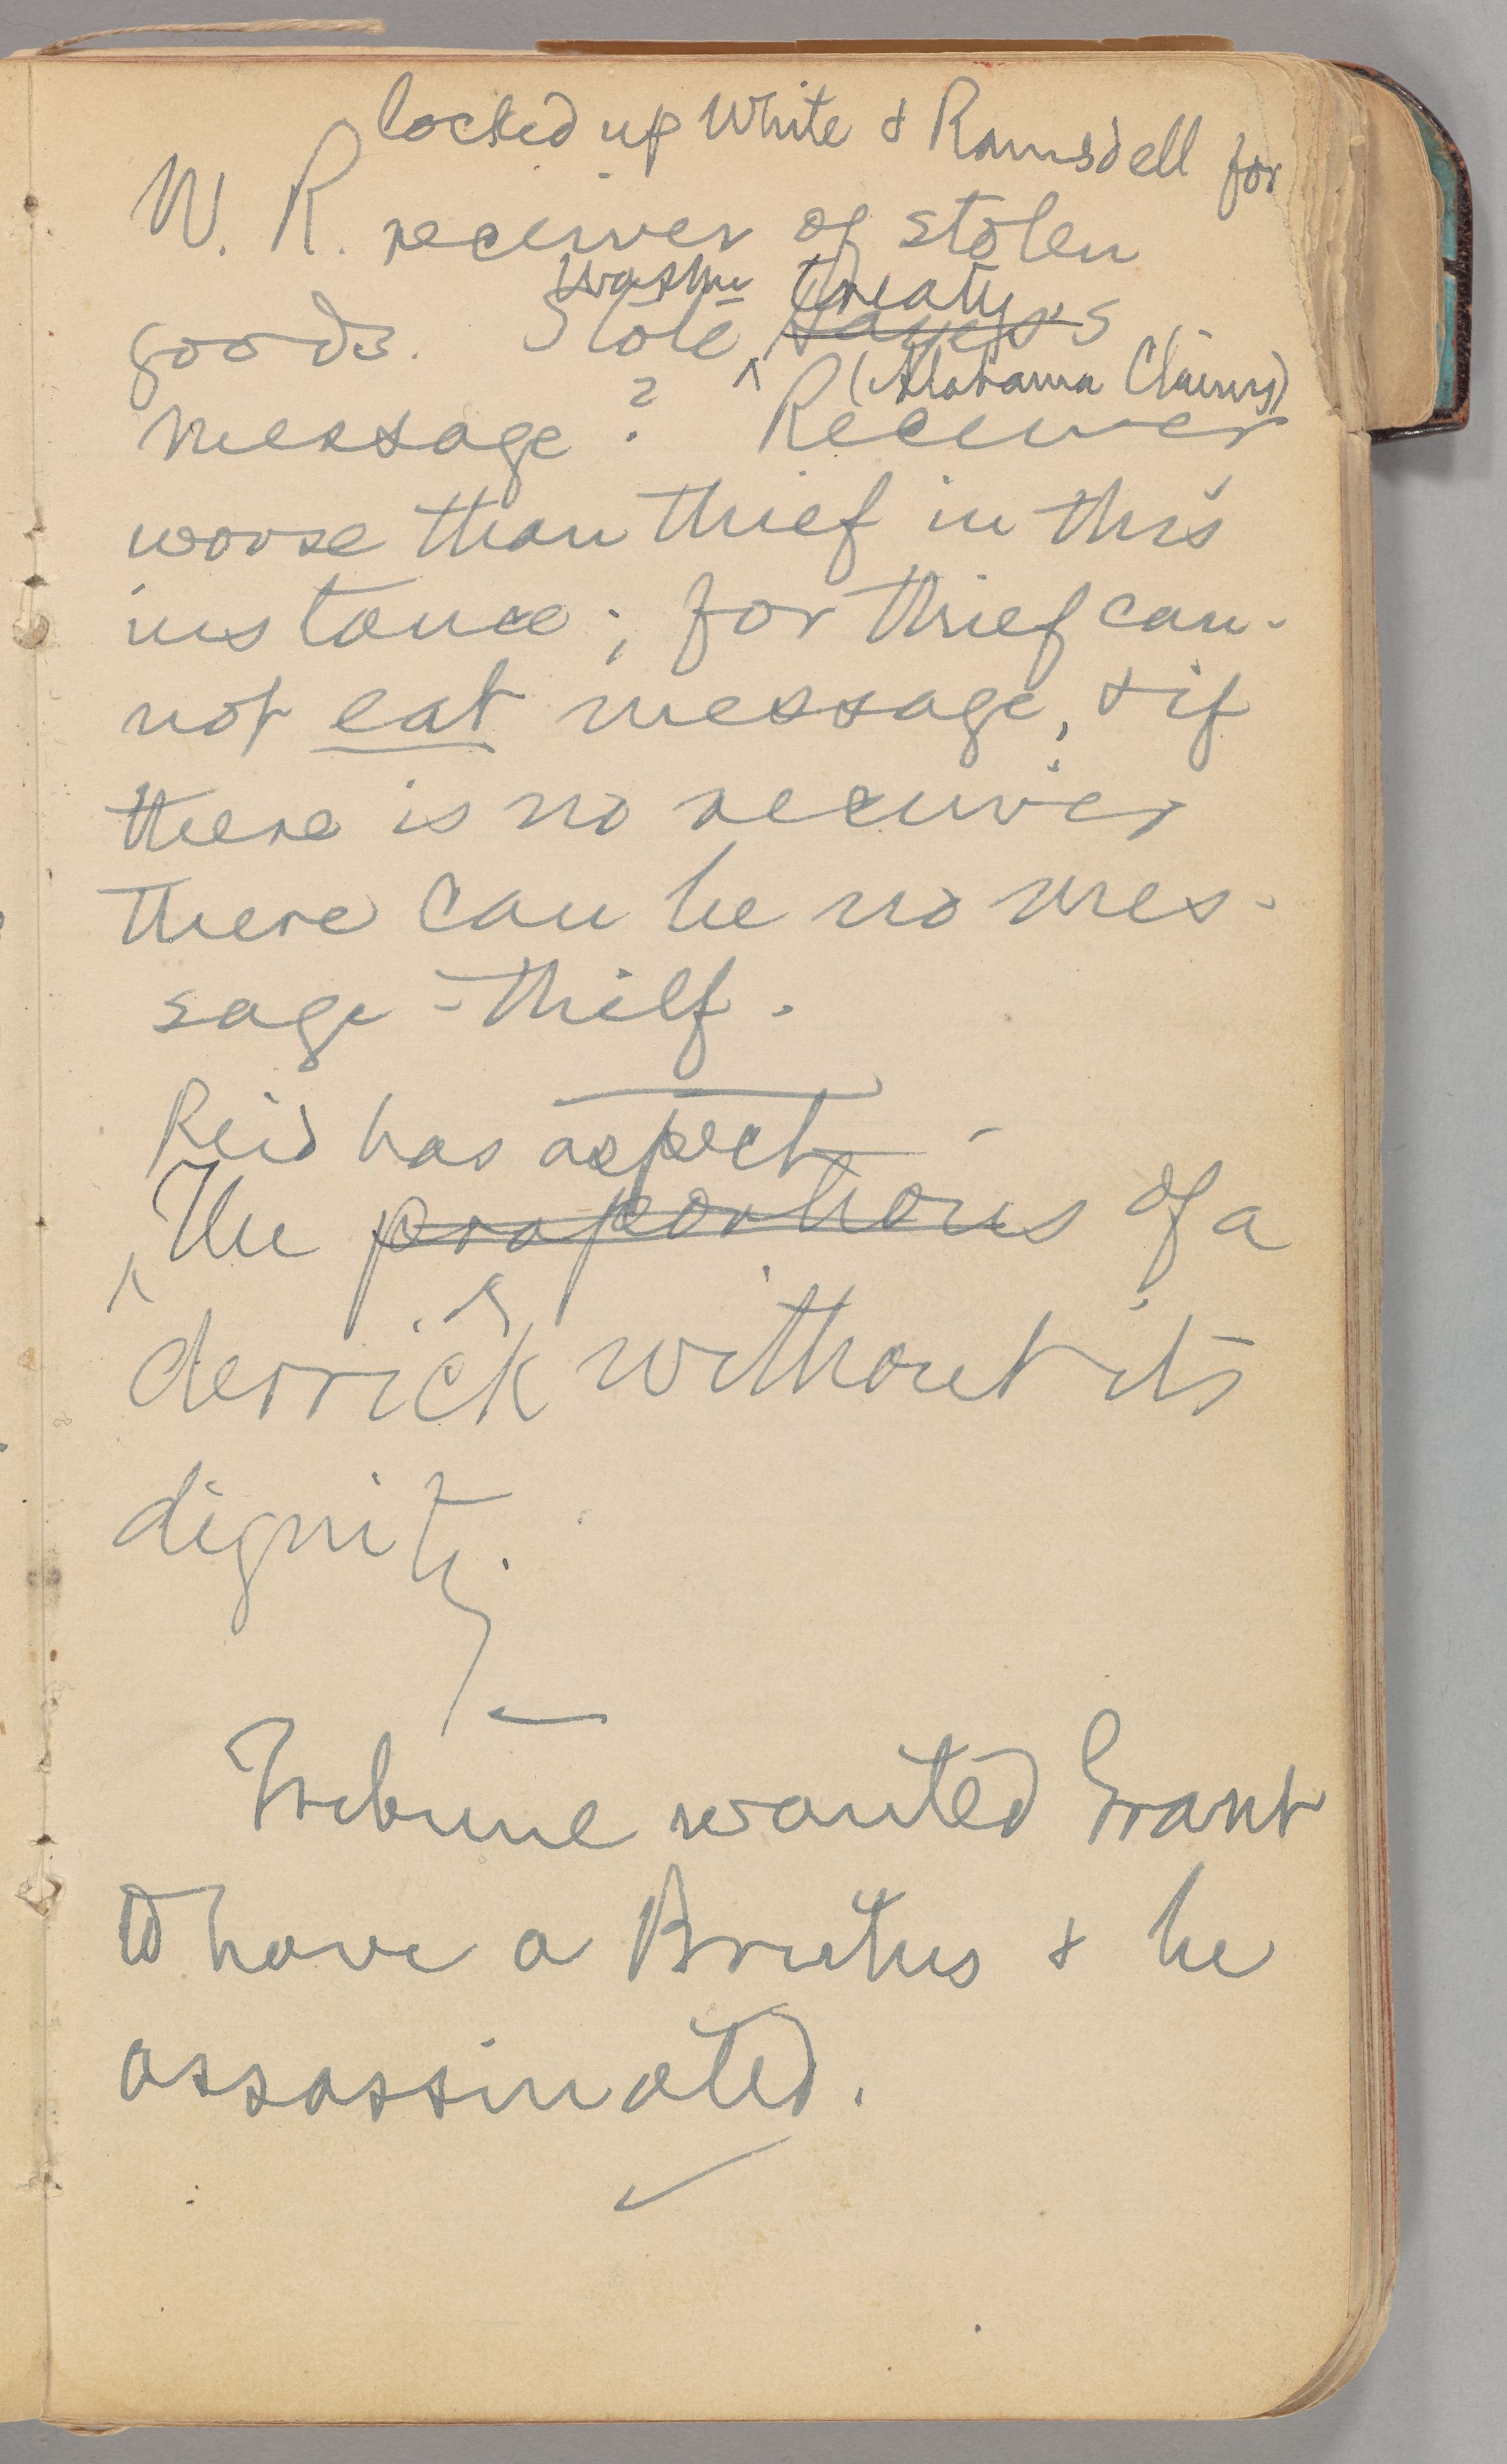 locked up White & Ramsdell for
W. R. receiver of stolen
Washn treaty
goods. Stole Hayes's
(Alabama Claims)
message? Receiver
worse than thief in this
instance; for thief can-
not eat message, & if
there is no receiver
there can be no mes-
sage-thief.
Reid has aspect
The proportions of a
derrick without its
dignity.
Tribune wanted Grant
to have a Brutus & be
assassinated.